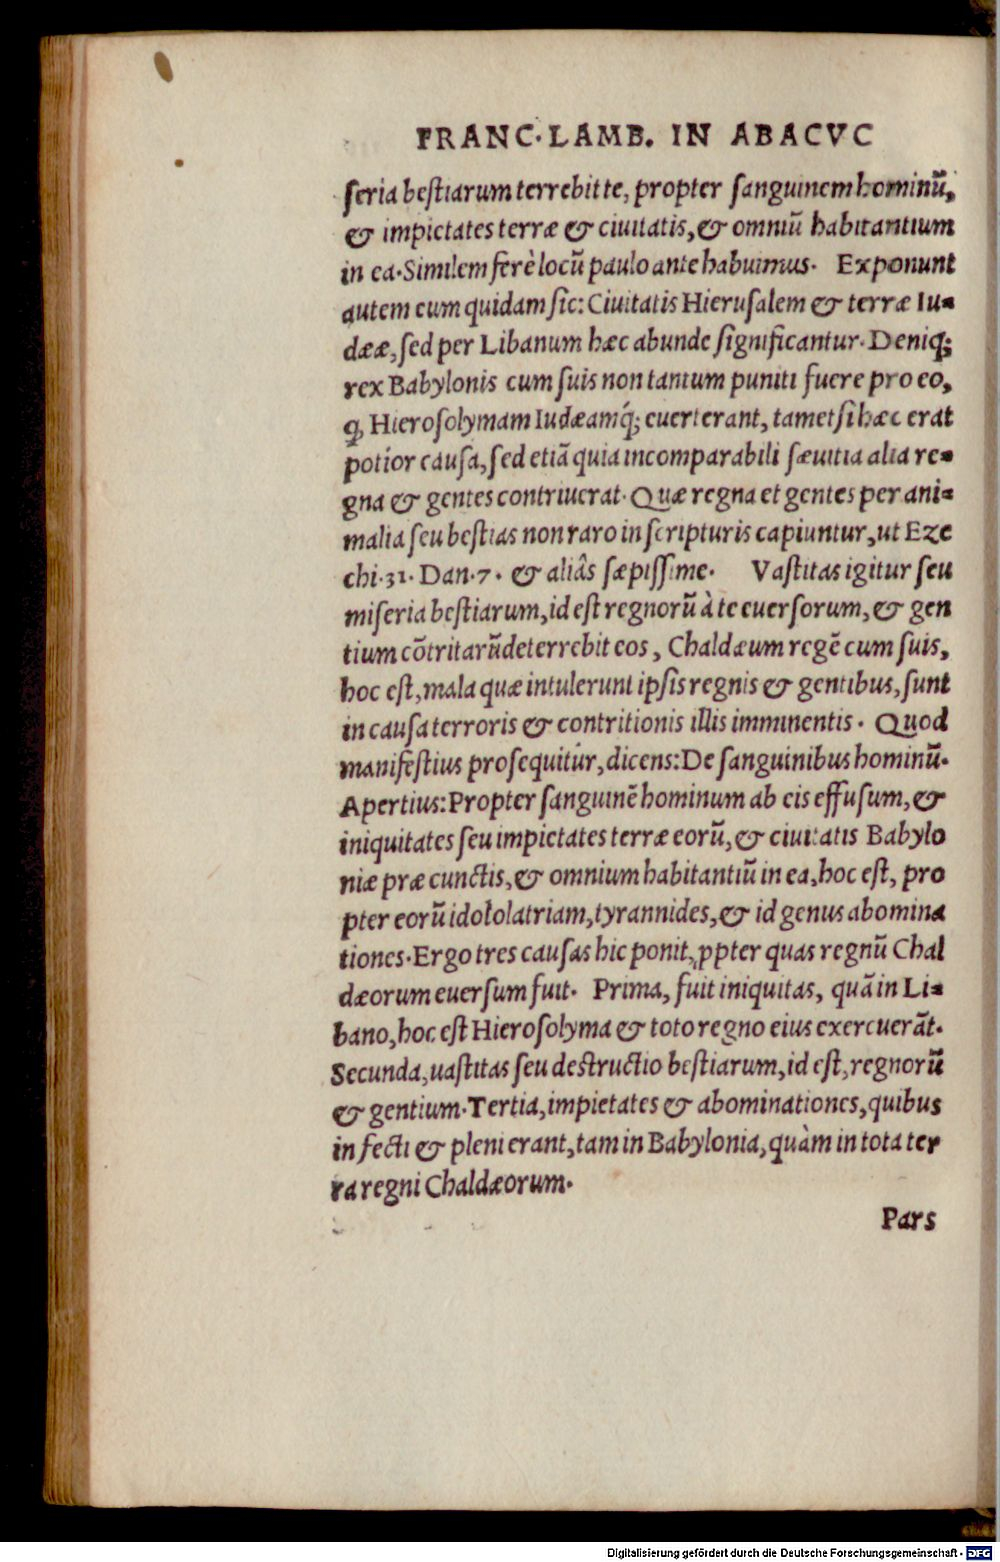 FRANC. LAMB. IN ABACVC
ſeria beſtiarum terrebit te, propter ſanguinem hominũ,
& impietates terræ & ciuitatis, & omniũ habitantium
in ea. Similem ferè locũ paulo ante habuimus. Exponunt
autem eum quidam ſic: Ciuitatis Hieruſalem & terræ Iu-
dææ, ſed per Libanum hæc abunde ſignificantur. Deniq́;
rex Babylonis cum ſuis non tantum puniti fuere pro eo,
ꝙ Hieroſolymam Iudæamq́; euerterant, tametſi hæc erat
potior cauſa, ſed etiã quia incomparabili ſæuitia alia re-
gna & gentes contriuerat. Quæ regna et gentes per ani-
malia ſeu beſtias non raro in ſcripturis capiuntur, ut Eze
chi. 31. Dan. 7. & aliâs ſæpiſſime. Vaſtitas igitur ſeu
miſeria beſtiarum, id eſt regnorũ à te euerſorum, & gen
tium cõtritarũ deterrebit eos, Chaldæum regẽ cum ſuis,
hoc eſt, mala quæ intulerunt ipſis regnis & gentibus, ſunt
in cauſa terroris & contritionis illis imminentis. Quod
manifeſtius proſequitur, dicens: De ſanguinibus hominũ.
Apertius: Propter ſanguinẽ hominum ab eis effuſum, &
iniquitates ſeu impietates terræ eorũ, & ciuitatis Babylo
niæ præ cunctis, & omnium habitantiũ in ea, hoc eſt, pro
pter eorũ idololatriam, tyrannides, & id genus abomina
tiones. Ergo tres cauſas hic ponit, ꝓpter quas regnũ Chal
dæorum euerſum fuit. Prima, fuit iniquitas, quã in Li-
bano, hoc eſt Hieroſolyma & toto regno eius exercuerãt.
Secunda, uaſtitas ſeu destructio beſtiarum, id eſt, regnorũ
& gentium. Tertia, impietates & abominationes, quibus
infecti & pleni erant, tam in Babylonia, quàm in tota ter
ra regni Chaldæorum.
Pars
Digitalisierung gefördert durch die Deutsche Forschungsgemeinschaft - DFG